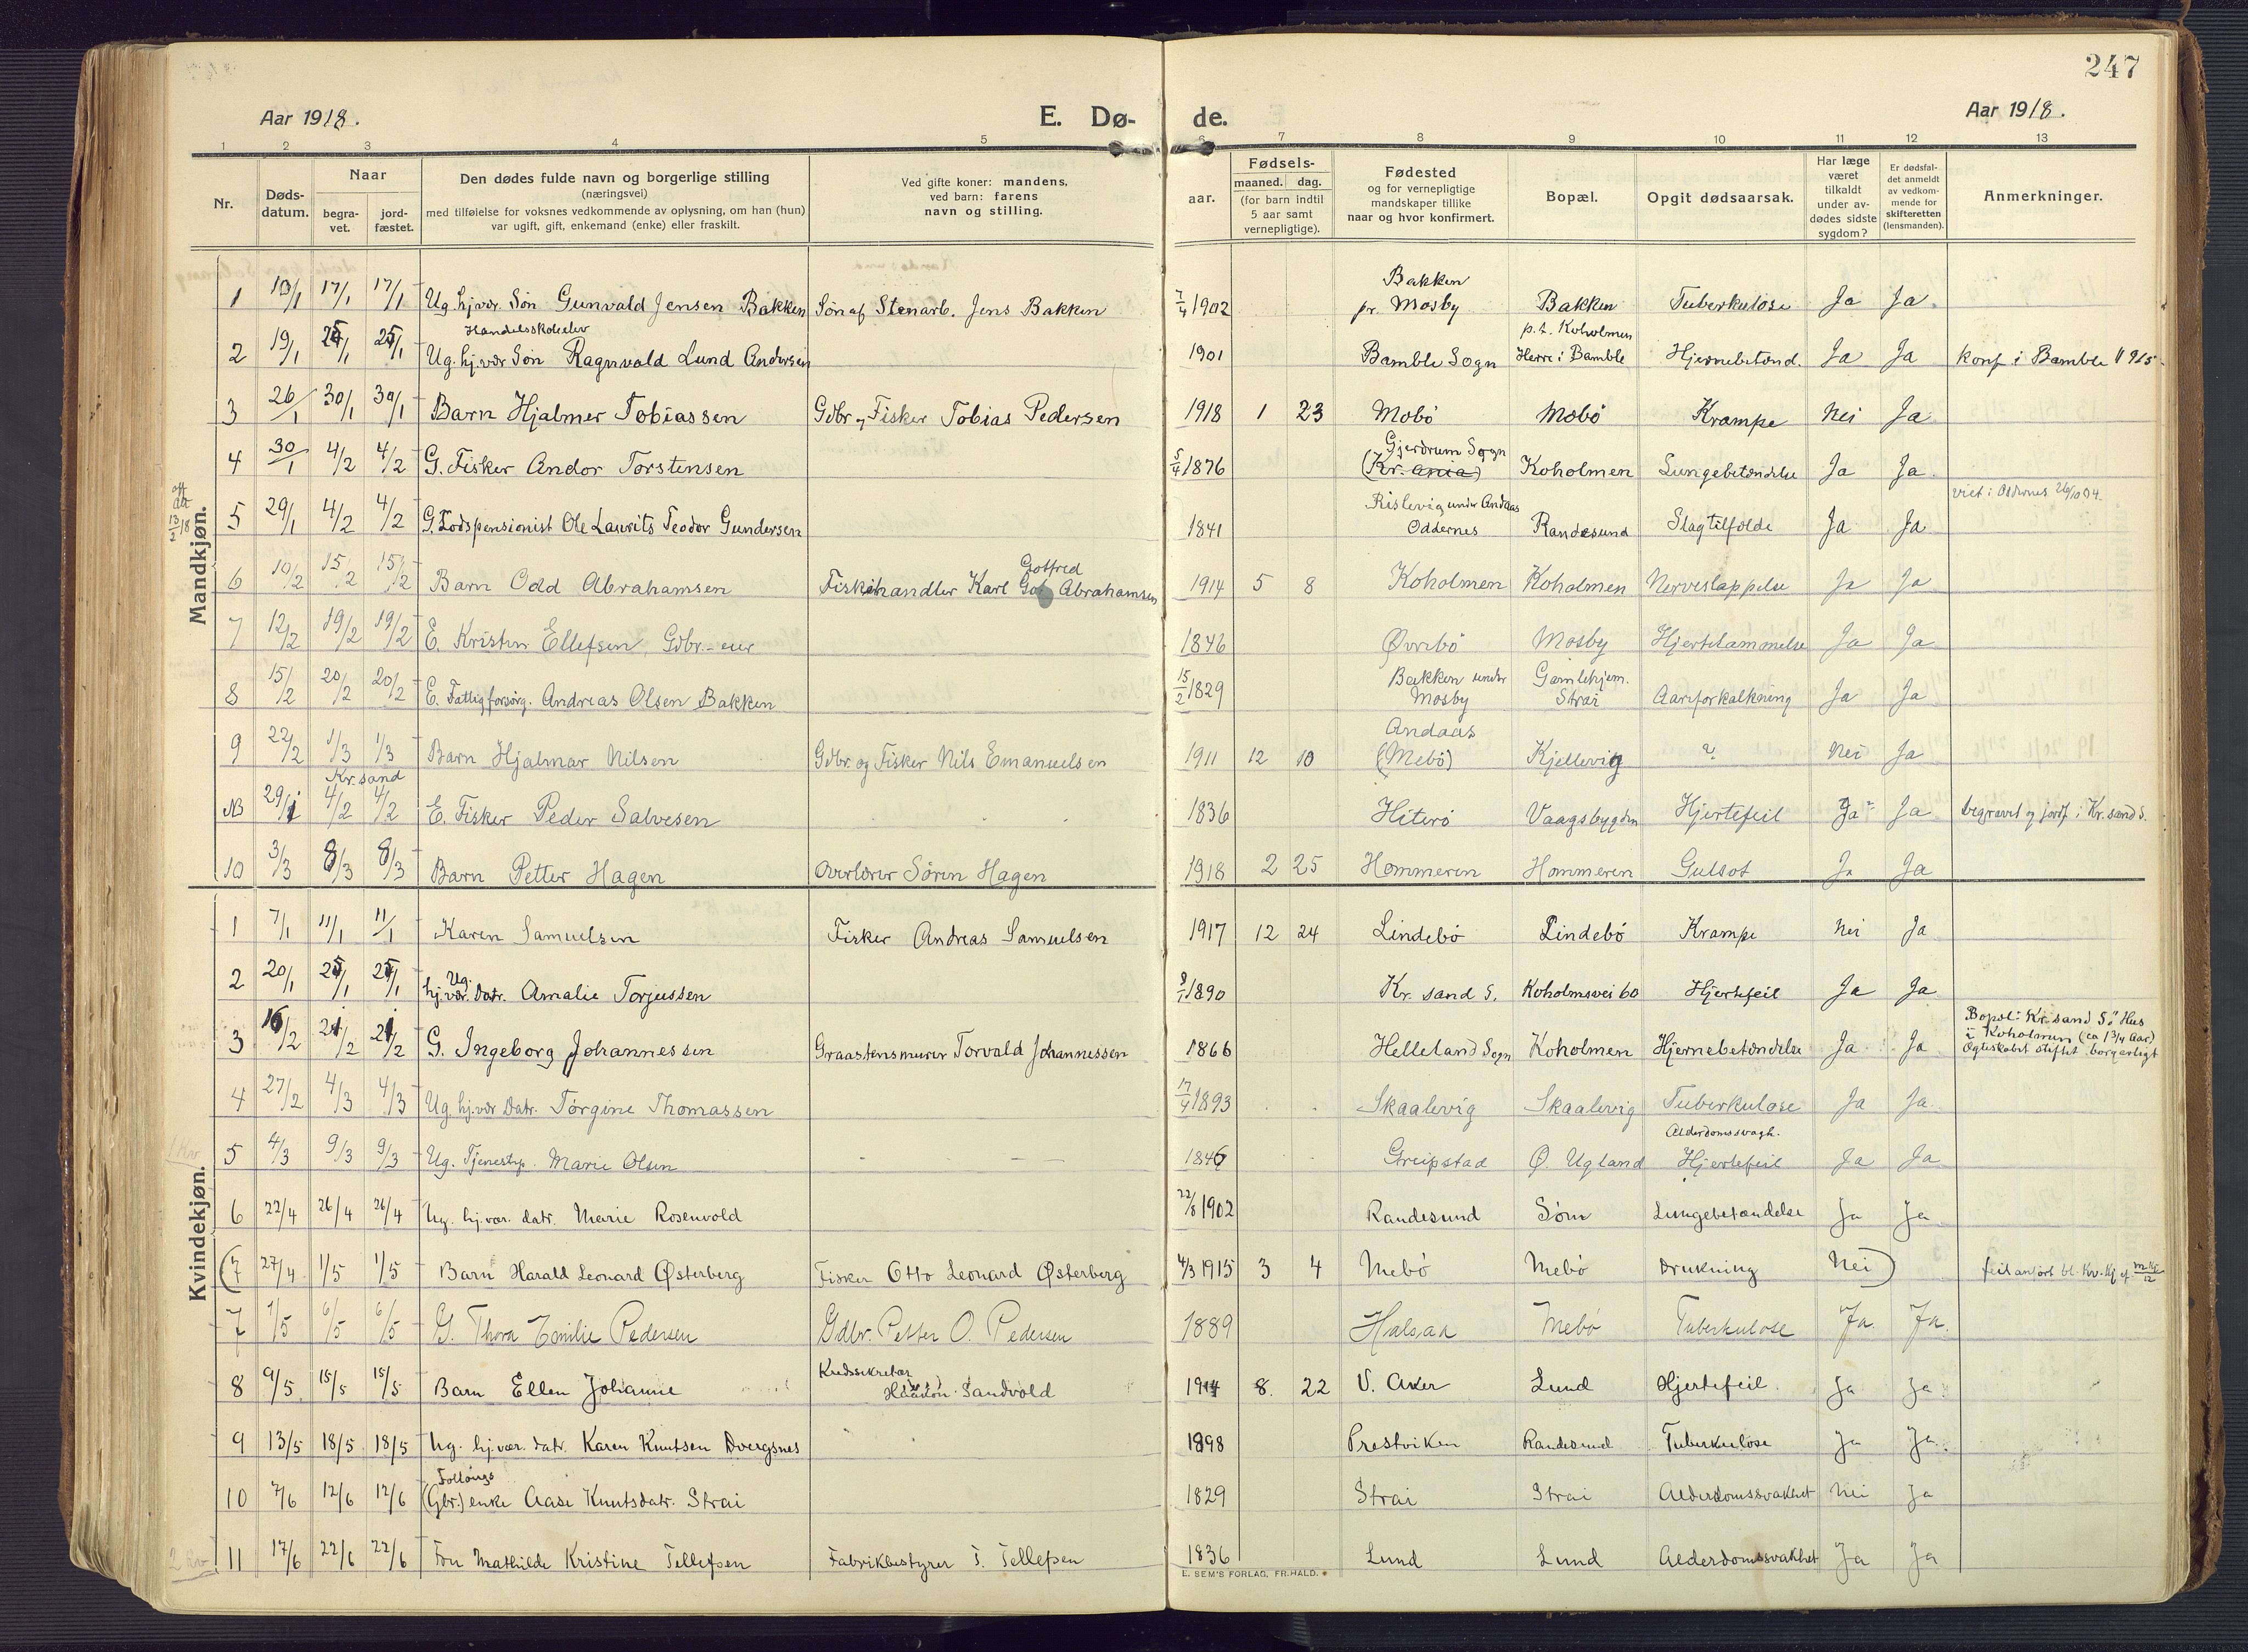 247
Aar 1918.
E. Dø-
de.
Aar 1918.
1 2 3 4 5 6 7 8 9 10 11 12 13
Nr.
Døds-
datum.
Naar
begra-
vet.
jord-
fæstet.
Den dødes fulde navn og borgerlige stilling
(næringsvei)
med tilføielse for voksnes vedkommende av oplysning, om han (hun)
var ugift, gift, enkemand (enke) eller fraskilt.
Ved gifte koner: mandens,
ved barn: farens
navn og stilling.
Fødsels-
aar.
maaned.
dag.
(for barn indtil
5 aar samt
vernepligtige).
Fødested
og for vernepligtige
mandskaper tillike
naar og hvor konfirmert.
Bopæl.
Opgit dødsaarsak.
Har læge
været
tilkaldt
under av-
dødes sidste
sygdom?
Er dødsfal-
det anmeldt
av vedkom-
mende for
skifteretten
(lensmanden).
Anmerkninger.
Mandkjøn.
1 13/1 17/1 17/1 Ug. hj.vær. Søn Gunvald Jensen Bakken Søn af Stenarb. Jens Bakken 7/4 1902 Bakken pr. Mosby Bakken Tuberkulose Ja Ja
2 19/1 25/1 25/1 Handelsskoleelev Ug. hj.vær Søn Ragnvald Lund Andersen 1901 Bamble Sogn p.t. Koholmen Herre i Bamble Hjernebetænd. Ja Ja konf i Bamble 1915
3 26/1 30/1 30/1 Barn Hjalmer Tobiassen Gdbr og Fisker Tobias Pedersen 1918 1 23 Mebö Mebö Krampe Nei Ja
4 30/1 4/2 4/2 G. Fisker Andor Torstensen 5/4 1876 Gjerdrum Sogn (Kr.ania) Koholmen Lungebetændelse Ja Ja
5 29/1 4/2 4/2 G. Lodspensionist Ole Laurits Teodor Gundersen 1841 Rislevig under Andaas Oddernes Randesund Slagtilfælde Ja Ja viet i Oddernes 26/10 04.
6 10/2 15/2 15/2 Barn Odd Abrahamsen Fiskehandler Karl Gotfred Abrahamsen 1914 5 8 Koholmen Koholmen Nerveslappelse Ja Ja
7 12/2 19/2 19/2 E. Kristen Ellefsen, Gdbr.-eier 1846 Øvrebö Mosby Hjertelammelse Ja Ja
8 15/2 20/2 20/2 E. Fattigforsörg. Andreas Olsen Bakken 15/2 1829 Bakken under Mosby Gamlehjem. Strai Aareforkalkning Ja Ja
9 22/2 1/3 1/3 Barn Hjalmar Nilsen Gdbr. og Fisker Nils Emanuelsen 1911 12 10 Andaas (Mebö) Kjellevig ? Nei Ja
NB 29/1 Kr.sand 4/2 4/2 E. Fisker Peder Salvesen 1836 Hiterö Vaagsbygden Hjertefeil Ja? Ja begravet og jordf. i Kr.sand S.
10 3/3 8/3 8/3 Barn Petter Hagen Overlærer Sören Hagen 1918 2 25 Hommeren Hommeren Gulsot Ja Ja
Kvindekjøn.
1 7/1 11/1 11/1 Karen Samuelsen Fisker Andreas Samuelsen 1917 12 24 Lindebö Lindebö Krampe Nei Ja
2 20/1 25/1 25/1 Ug. hj.vær. Datr. Amalie Torjussen 1890 Kr. sand S. Koholmsvei 60 Hjertefeil Ja Ja
3 16/2 21/2 21/2 G. Ingeborg Johannessen Graastensmurer Torvald Johannessen 1866 Helleland Sogn Koholmen Hjernebetændelse Ja Ja Bopæl: Kr.sand S. Hus i Koholmen (ca 1 3/4 Aar) Ægteskabet stiftet borgerligt
4 27/2 4/3 4/3 Ug. hj.vær Datr. Törgine Thomassen 17/4 1893 Skaalevig Skaalevig Tuberkulose Ja Ja
5 4/3 9/3 9/3 Ug. Tjenestep. Marie Olsen 1846 Greipstad Ø. Ugland Alderdomssvagh. Hjertefeil Ja Ja
6 22/4 26/4 26/4 Ug. hj.vær. datr. Marie Rosenvold 22/8 1902 Randesund Söm Lungebetændelse Ja Ja
(7 27/4 1/5 1/5 Barn Harald Leonard Østerberg Fisker Otto Leonard Østerberg 4/3 1915 3 4 Mebö Mebö Drukning Nei) feilanfört bl. Kv.Kj. cf. M.Kj. 12
7 1/5 6/5 6/5 G. Thora Emilie Pedersen Gdbr. Petter O. Pedersen 1889 Halsaa Mebö Tuberkulose Ja Ja.
8 9/5 15/5 15/5 Barn Ellen Johanne Kredssekretær Haakon Sandvold 8. 22 V. Aker Lund Hjertefeil. Ja Ja
9 13/5 18/5 18/5 Ug. hj.vær. datr. Karen Knutsen Dvergsnes 1898 Prestviken Randesund Tuberkulose Ja Ja
10 7/6 12/6 12/6 Follougs (Gbr.) enke Aase Knutsdatr. Strai 1829 Strai Strai Alderdomssvakhet Nei Ja
11 17/6 22/6 22/6 Fru Mathilde Kristine Tellefsen Fabrikbestyrer T. Tellefsen 1836 Lund Lund Alderdomssvakhet Ja Ja
E. SEM'S FORLAG, FR.HALD.